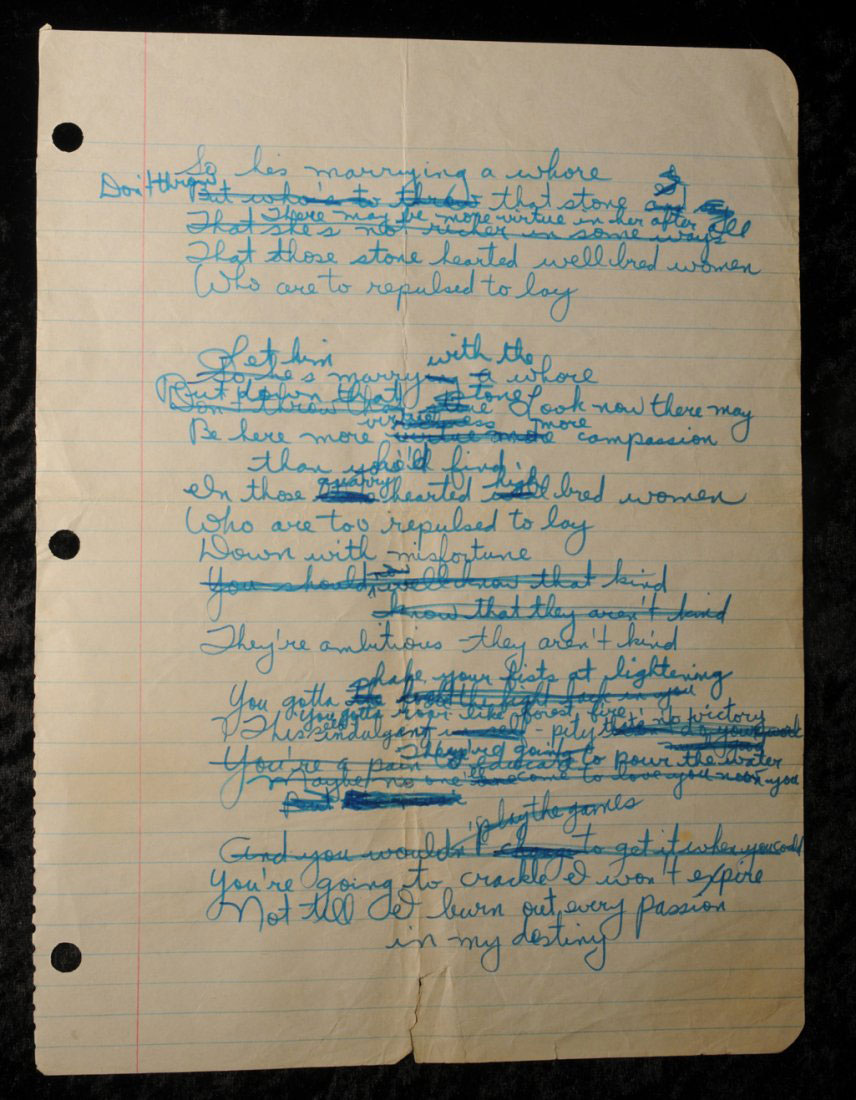 So hes marrying a whore
Don't throw
But who's to throw that stone
There may be more virtue in her after all
That she's not richer in some ways
That those stone hearted well bred women
Who are to repulsed to lay
Let him with the
So he's marrying a whore
Put down that stone
Don't throw that Look now there may
virtue more
Be here more compassion
than you'll find
quarry high
In those hearted bred women
Who are too repulsed to lay
Down with misfortune
now
You should well know that kind
know that they aren't kind
They're ambitious they aren't kind
shake your fists at lightening
You gotta the light back in you
you gotta roar like forest fire no victory
This self indulgent - pity
They're going to
You're a pain to educate to pour the water
Maybe no one'll come to love you now you
But
play the games
And you wouldn't to get it when you could
You're going to crackle I won't expire
Not till I burn out every passion
in my destiny